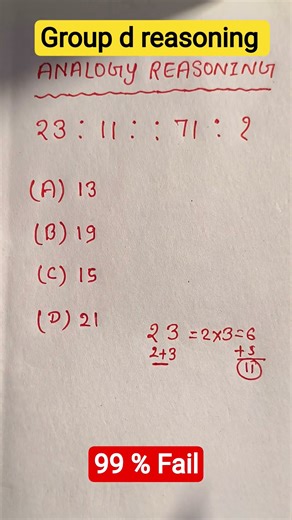 Group d reasoning
ANALOGY REASONING
23 : 11 : : 71 : ?
(A) 13
(B) 19
(C) 15
(D) 21
23 = 2x3=6
2+3 +5
11
99 % Fail